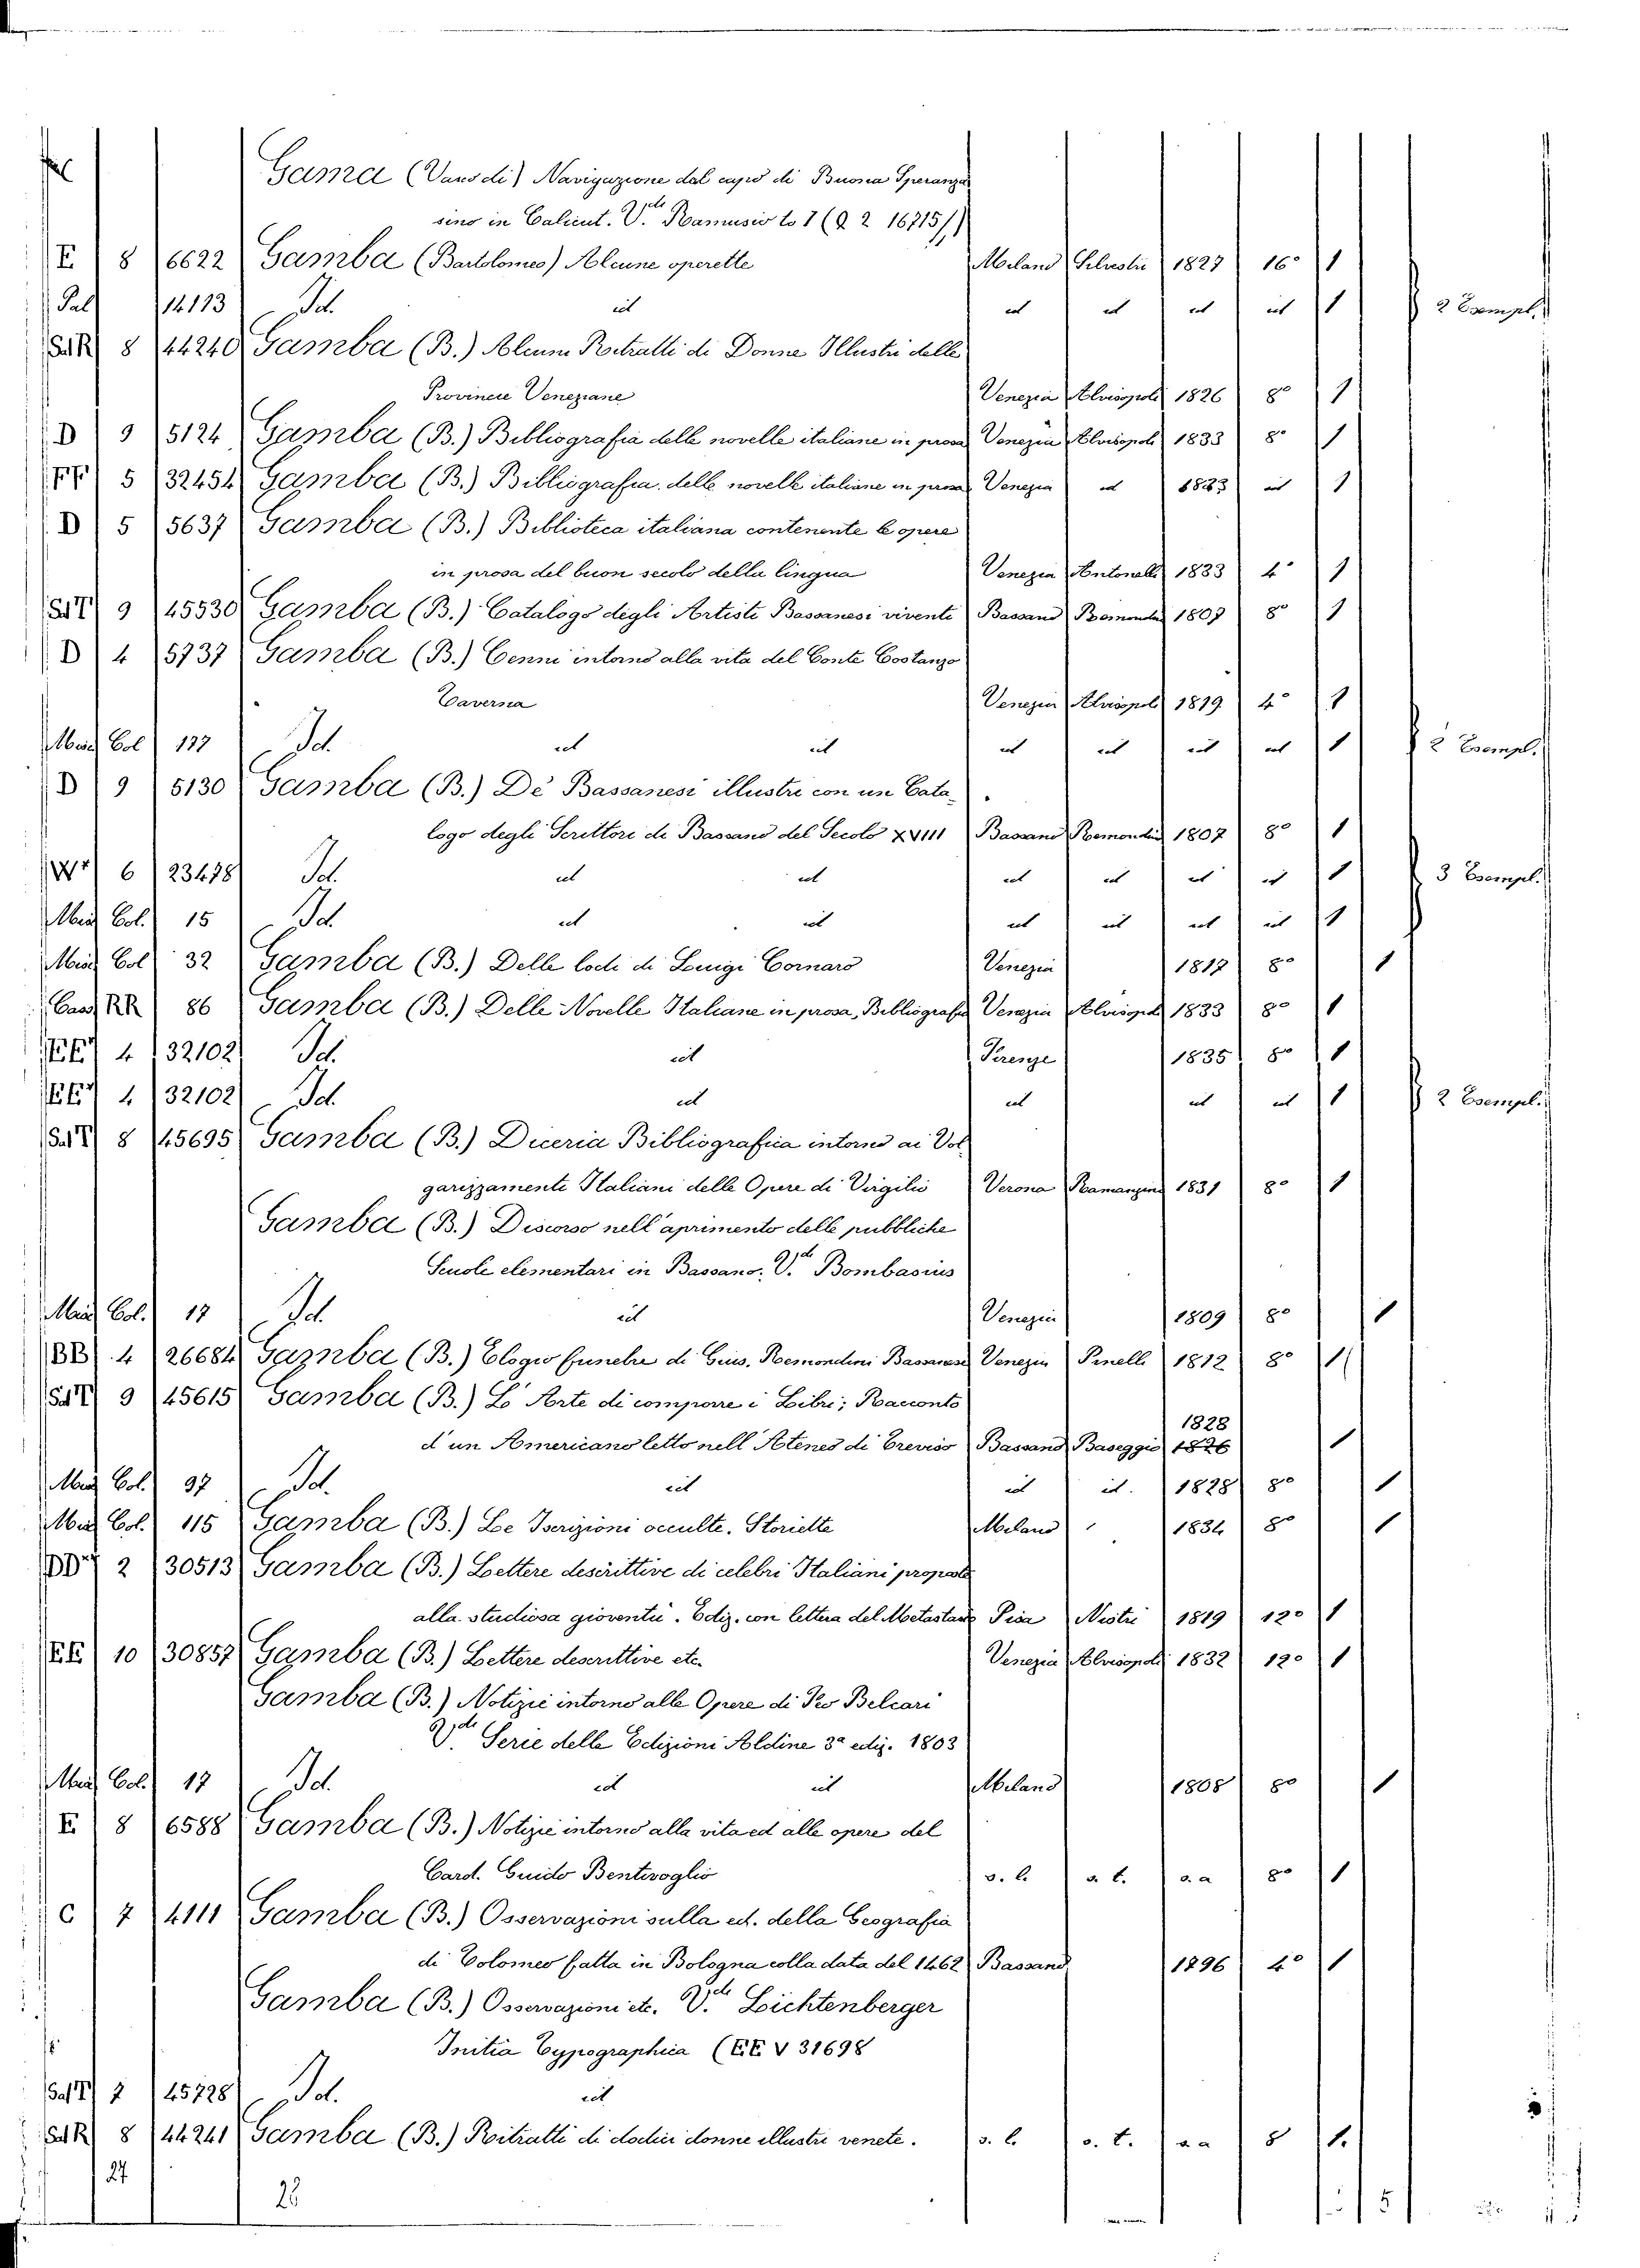 Gama (Vasco di) Navigazione dal capo di Buona Speranza
sino in Calicut. V.di Ramusio to 1 (Q 2 16715/1)
E 8 6622 Gamba (Bartolomeo) Alcune operette Milano Silvestri 1827 16° 1
Sal 14113 Id. id id id id id 1 2 Esempl.
Sal R 8 44240 Gamba (B.) Alcuni Ritratti di Donne Illustri delle
Provincie Veneziane Venezia Alvisopoli 1826 8° 1
D 9 5124 Gamba (B.) Bibliografia delle novelle italiane in prosa Venezia Alvisopoli 1833 8° 1
FF 5 32454 Gamba (B.) Bibliografia delle novelle italiane in prosa Venezia id 1833 id 1
D 5 5637 Gamba (B.) Biblioteca italiana contenente le opere
in prosa del buon secolo della lingua Venezia Antonelli 1833 4° 1
Sal T 9 45530 Gamba (B.) Catalogo degli Artisti Bassanesi viventi Bassano Remondini 1807 8° 1
D 4 5737 Gamba (B.) Cenni intorno alla vita del Conte Costanzo
Taverna Venezia Alvisopoli 1819 4° 1
Misc Col 137 Id id id id id id id 1 2 Esempl.
D 9 5130 Gamba (B.) De' Bassanesi illustri con un Cata-
logo degli Scrittori di Bassano del Secolo XVIII Bassano Remondini 1807 8° 1
6 23478 Id. id id id id id id 1 3 Esempl.
Misc Col. 15 Id. id id id id id id 1
Misc Col 32 Gamba (B.) Delle lodi di Luigi Cornaro Venezia 1817 8° 1
Cass RR 86 Gamba (B.) Delle Novelle Italiane in prosa, Bibliografia Venezia Alvisopoli 1833 8° 1
4 32102 Id. id Firenze 1835 8° 1
4 32102 Id. id id id id 1 2 Esempl.
Sal T 8 45695 Gamba (B.) Diceria Bibliografica intorno ai Vol
garizzamenti Italiani delle Opere di Virgilio Verona Ramanzini 1831 8° 1
Gamba (B.) Discorso nell'aprimento delle pubbliche
Scuole elementari in Bassano. V.di Bombasius
Misc Col. 17 Id. id Venezia 1809 8° 1
BB 4 26684 Gamba (B.) Elogio funebre di Gius. Remondini Bassanese Venezia Pinelli 1812 8° 1
Sal T 9 45615 Gamba (B.) L' Arte di comporre i Libri; Racconto
d'un Americano letto nell Ateneo di Treviso Bassano Baseggio 1828 1826 1
Misc Col. 97 Id. id id id. 1828 8° 1
Misc Col. 115 Gamba (B.) Le Iscrizioni occulte. Storiette Milano 1834 8° 1
2 30513 Gamba (B.) Lettere descrittive di celebri Italiani proposte
alla studiosa gioventù. Ediz. con lettera del Metastasio Pisa Nistri 1819 12° 1
EE 10 30857 Gamba (B.) Lettere descrittive etc. Venezia Alvisopoli 1832 12° 1
Gamba (B.) Notizie intorno alle Opere di Feo Belcari
V.di Serie delle Edizioni Aldine 3a ediz. 1803
Misc Col. 17 Id. id id Milano 1808 8° 1
E 8 6588 Gamba (B.) Notizie intorno alla vita ed alle opere del
Card. Guido Bentivoglio s. l. s. t. s. a 8° 1
C 7 4111 Gamba (B.) Osservazioni sulla ed. della Geografia
di Tolomeo fatta in Bologna colla data del 1462 Bassano 1796 4° 1
Gamba (B.) Osservazioni etc. V.di Lichtenberger
Initia Typographica (EE V 31698
Sal T 7 45728 Id. id
Sal R 8 44241 Gamba (B.) Ritratti di dodici donne illustri venete. s. l. s. t. s. a 8 1.
27
28
5